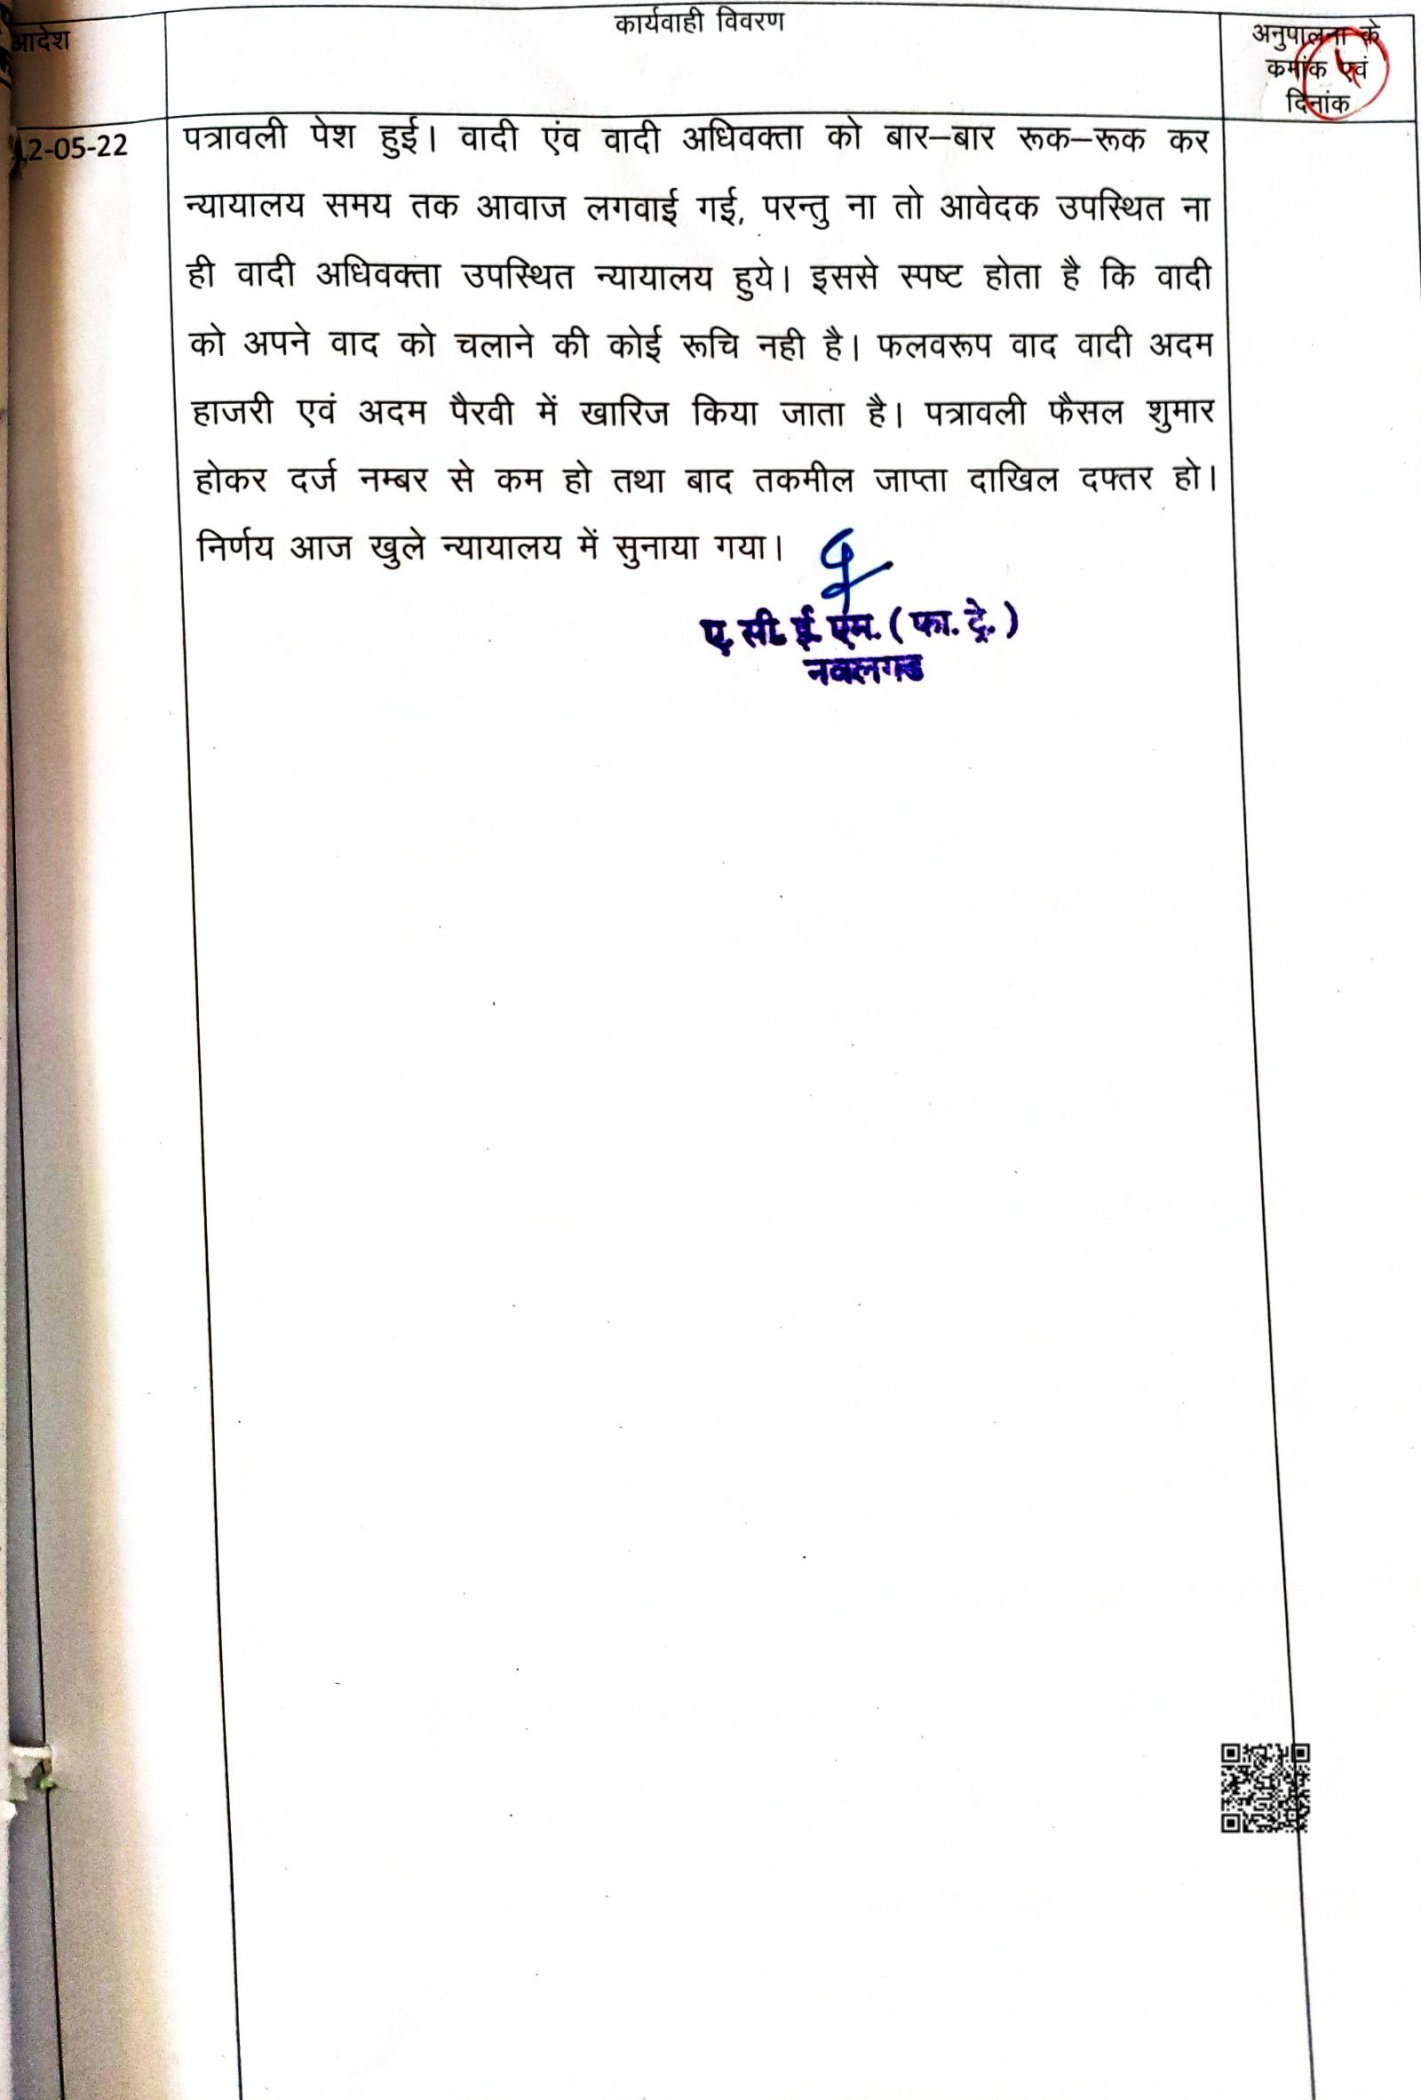 आदेश
कार्यवाही विवरण
अनुपालना के
कमांक एवं
दिनांक
12-05-22
पत्रावली पेश हुई। वादी एंव वादी अधिवक्ता को बार–बार रूक–रूक कर
न्यायालय समय तक आवाज लगवाई गई, परन्तु ना तो आवेदक उपस्थित ना
ही वादी अधिवक्ता उपस्थित न्यायालय हुये। इससे स्पष्ट होता है कि वादी
को अपने वाद को चलाने की कोई रूचि नही है। फलवरूप वाद वादी अदम
हाजरी एवं अदम पैरवी में खारिज किया जाता है। पत्रावली फैसल शुमार
होकर दर्ज नम्बर से कम हो तथा बाद तकमील जाप्ता दाखिल दफ्तर हो।
निर्णय आज खुले न्यायालय में सुनाया गया।
ए. सी. ई. एम. ( फा. ट्रे. )
नवलगढ